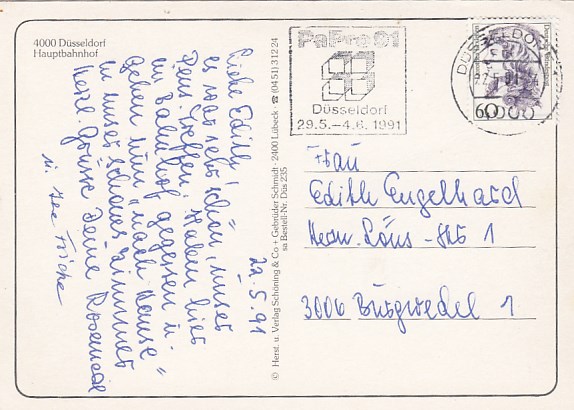 4000 Düsseldorf
Hauptbahnhof
22.5.91
Liebe Edith!
es war sehr schön, unser
Rens. treffen. Haben hier
im Bahnhof gegessen u.
gehen nun "nach Hause"
in unser schönes Zimmer
Herzl. Grüsse Deine Rosemarie
u. Ilse Fricke
© Herst. u. Verlag Schöning & Co + Gebrüder Schmidt · 2400 Lübeck · ☎ (0451) 31224
sa Bestell-Nr. Düs 235
PaPro 91
Düsseldorf
29.5.–4.6.1991
DÜSSELDORF
22.5.91
4000
60
Frau
Edith Engelhard
Herm. Löns-Str 1
3006 Burgwedel 1